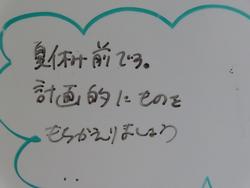 夏休み前です。
計画的にものを
もちかえりましょう